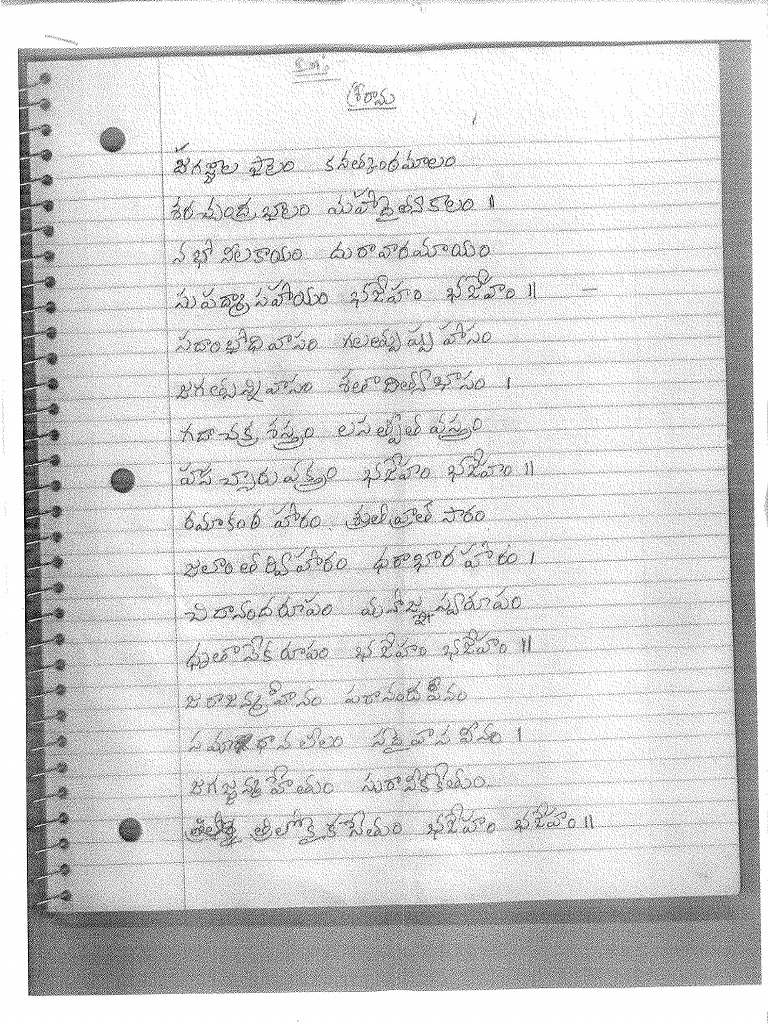 శ్రీరామ
జగజ్జాల పాలం కనత్కంఠమాలం
శరచ్చంద్ర భాలం మహాదైత్యకాలం ॥
నభో నీలకాయం దురావారమాయం
సుపద్మా సహాయం భజేహం భజేహం ॥
సదాంభోధివాసం గలత్పుష్పహాసం
జగత్సన్నివాసం శతాదిత్యభాసం ।
గదాచక్ర శస్త్రం లసత్పీత వస్త్రం
హస చ్చారు వక్త్రం భజేహం భజేహం ॥
రమాకంఠ హారం శ్రుతివ్రాత సారం
జలాంతర్విహారం ధరాభార హారం ।
చిదానందరూపం మనోజ్ఞ స్వరూపం
ధృతానేక రూపం భజేహం భజేహం ॥
జరాజన్మహీనం పరానంద పీనం
సమాధాన లీనం సదైవానవీనం ।
జగజ్జన్మ హేతుం సురానీకకేతుం
త్రిలోకైక సేతుం భజేహం భజేహం ॥